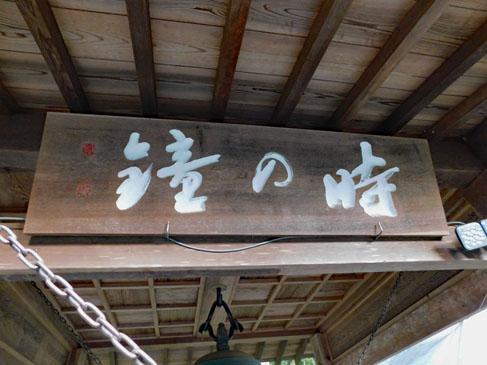 時の鐘